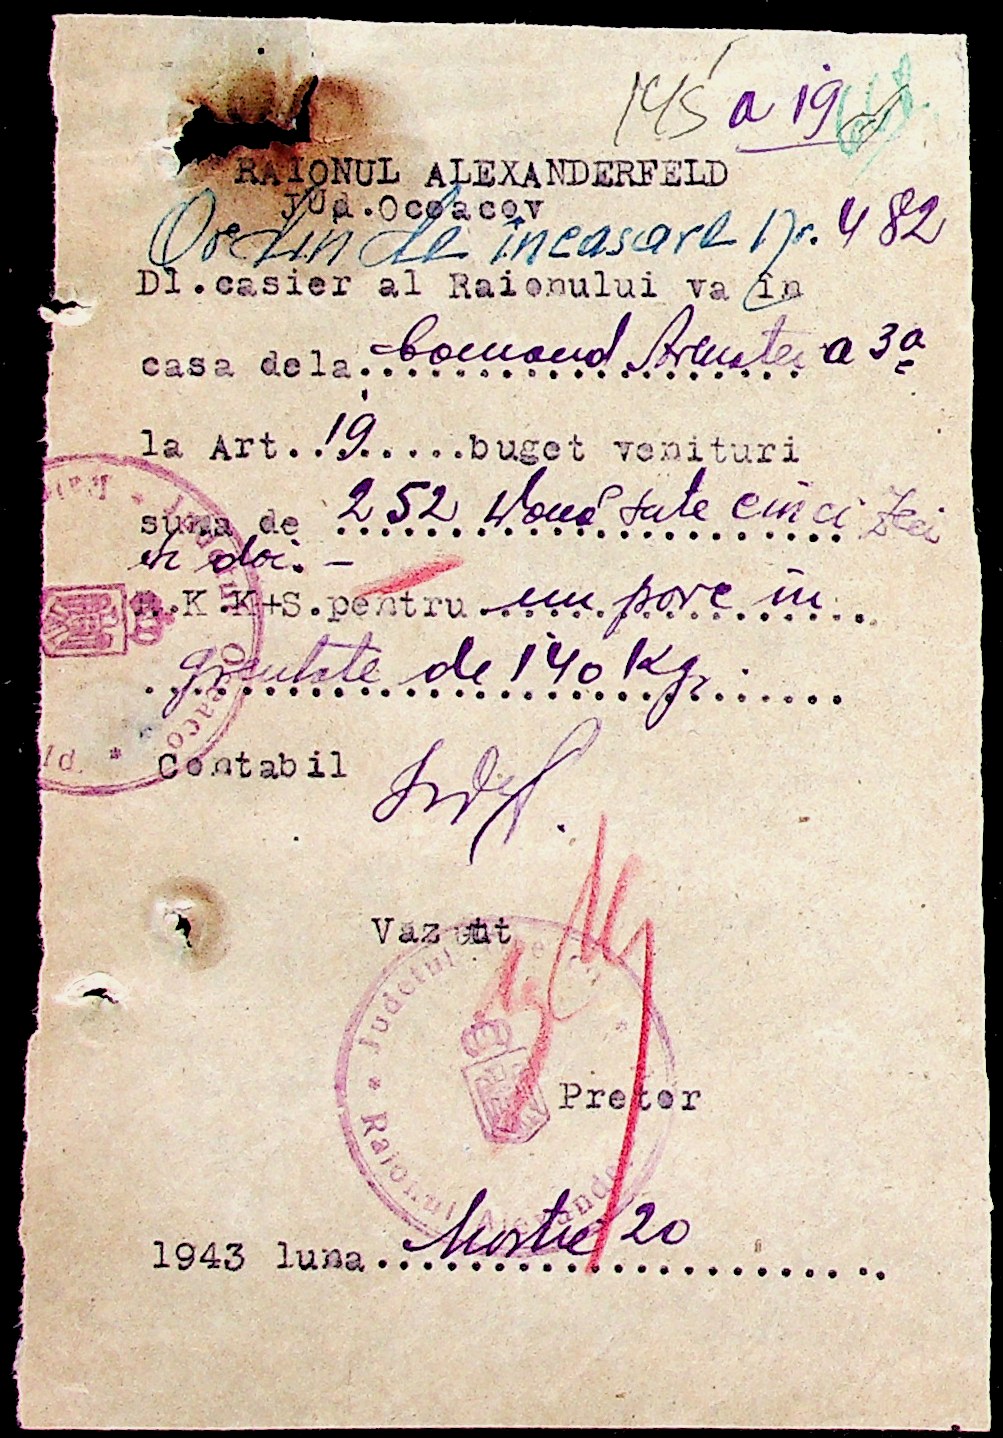 145 a 19
RAIONUL ALEXANDERFELD
Jud.Oceacov
Ordin de încasare Nr. 482
Dl.casier al Raionului va în
casa dela..Comand Armatei a 3a
la Art..19.....buget venituri
suma de 252 două sute cinci zeci
și doi. —
R.K.K+S.pentru un porc în
greutate de 140 Kgr.
Contabil
Vazut
Judetul
Raionul Alexande
Pretor
1943 luna Martie 20